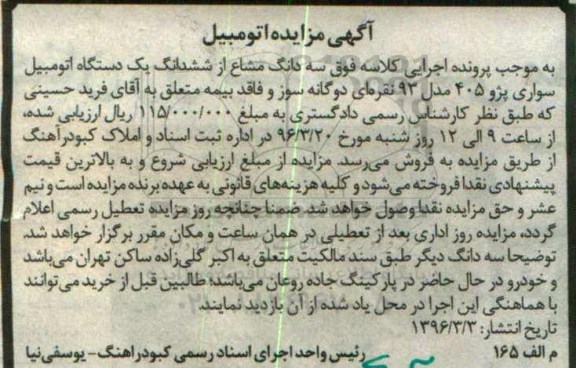 آگهی مزایده اتومبیل
به موجب پرونده اجرایی کلاسه فوق سه دانگ مشاع از ششدانگ یک دستگاه اتومبیل
سواری پژو ۴۰۵ مدل ۹۳ نقره‌ای دوگانه سوز و فاقد بیمه متعلق به آقای فرید حسینی
که طبق نظر کارشناس رسمی دادگستری به مبلغ ۱۱۵/۰۰۰/۰۰۰ ریال ارزیابی شده،
از ساعت ۹ الی ۱۲ روز شنبه مورخ ۹۶/۳/۲۰ در اداره ثبت اسناد و املاک کبودرآهنگ
از طریق مزایده به فروش می‌رسد. مزایده از مبلغ ارزیابی شروع و به بالاترین قیمت
پیشنهادی نقدا فروخته می‌شود و کلیه هزینه‌های قانونی به عهده برنده مزایده است و نیم
عشر و حق مزایده نقدا وصول خواهد شد. ضمنا چنانچه روز مزایده تعطیل رسمی اعلام
گردد، مزایده روز اداری بعد از تعطیلی در همان ساعت و مکان مقرر برگزار خواهد شد.
توضیحا سه دانگ دیگر طبق سند مالکیت متعلق به اکبر گلی‌زاده ساکن تهران می‌باشد
و خودرو در حال حاضر در پارکینگ جاده روعان می‌باشد؛ طالبین قبل از خرید می‌توانند
با هماهنگی این اجرا در محل یاد شده از آن بازدید نمایند.
تاریخ انتشار: ۱۳۹۶/۳/۳
م الف ۱۶۵ رئیس واحد اجرای اسناد رسمی کبودراهنگ- یوسفی‌نیا